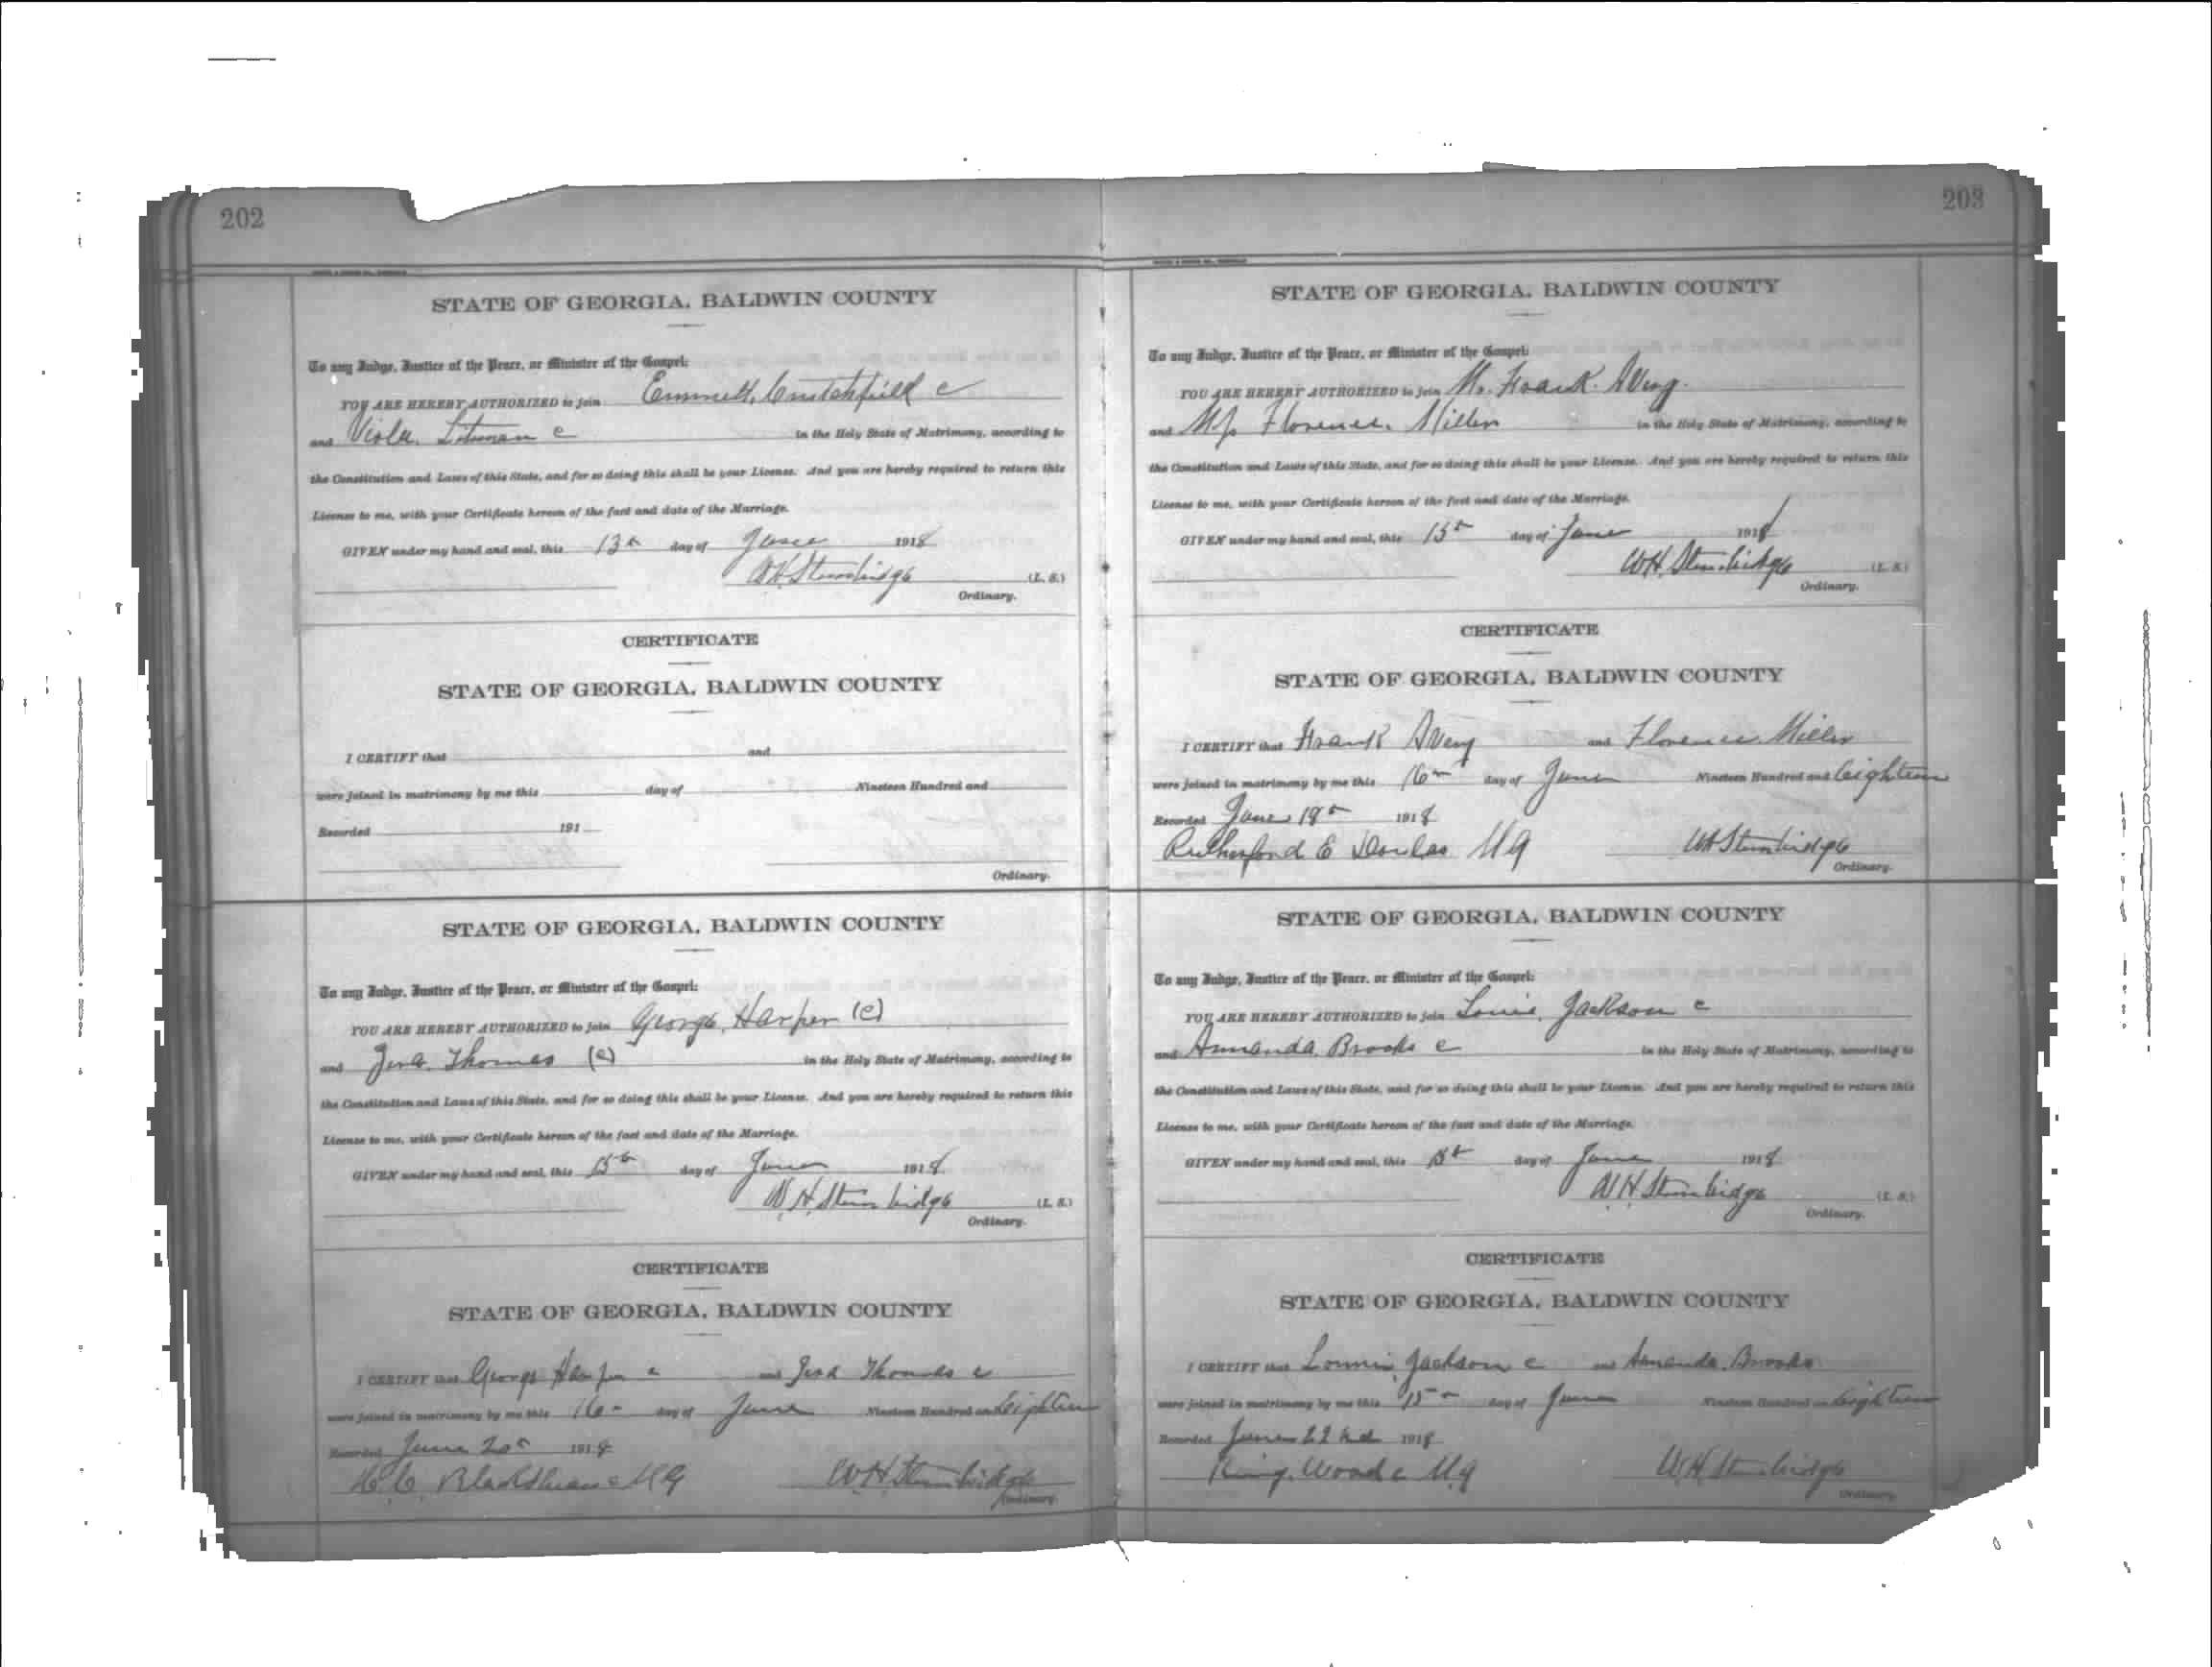 202
STATE OF GEORGIA, BALDWIN COUNTY
To any Judge, Justice of the Peace, or Minister of the Gospel:
YOU ARE HEREBY AUTHORIZED to join Emmett Crutchfield c
and Viola c in the Holy State of Matrimony, according to
the Constitution and Laws of this State, and for so doing this shall be your License. And you are hereby required to return this
License to me, with your Certificate hereon of the fact and date of the Marriage.
GIVEN under my hand and seal, this 13th day of June 1918
W H Stembridge (L. S.)
Ordinary.
CERTIFICATE
STATE OF GEORGIA, BALDWIN COUNTY
I CERTIFY that and
were joined in matrimony by me this day of Nineteen Hundred and
Recorded 191
Ordinary.
STATE OF GEORGIA, BALDWIN COUNTY
To any Judge, Justice of the Peace, or Minister of the Gospel:
YOU ARE HEREBY AUTHORIZED to join George Harper (c)
and Thomas (c) in the Holy State of Matrimony, according to
the Constitution and Laws of this State, and for so doing this shall be your License. And you are hereby required to return this
License to me, with your Certificate hereon of the fact and date of the Marriage.
GIVEN under my hand and seal, this 15th day of June 1918
W. H. Stembridge (L. S.)
Ordinary.
CERTIFICATE
STATE OF GEORGIA, BALDWIN COUNTY
I CERTIFY that George Harper c and Thomas c
were joined in matrimony by me this 16th day of June Nineteen Hundred and Eighteen
Recorded June 20th 1918
W H Stembridge
Ordinary.
203
STATE OF GEORGIA, BALDWIN COUNTY
To any Judge, Justice of the Peace, or Minister of the Gospel:
YOU ARE HEREBY AUTHORIZED to join Mr. Frank Avery
and Florence Miller in the Holy State of Matrimony, according to
the Constitution and Laws of this State, and for so doing this shall be your License. And you are hereby required to return this
License to me, with your Certificate hereon of the fact and date of the Marriage.
GIVEN under my hand and seal, this 15th day of June 1918
W H. Stembridge (L. S.)
Ordinary.
CERTIFICATE
STATE OF GEORGIA, BALDWIN COUNTY
I CERTIFY that Frank Avery and Florence Miller
were joined in matrimony by me this 16th day of June Nineteen Hundred and Eighteen
Recorded June 19th 1918
Rutherford E Douglas M G W H Stembridge
Ordinary.
STATE OF GEORGIA, BALDWIN COUNTY
To any Judge, Justice of the Peace, or Minister of the Gospel:
YOU ARE HEREBY AUTHORIZED to join Jackson c
and Amanda Brooks c in the Holy State of Matrimony, according to
the Constitution and Laws of this State, and for so doing this shall be your License. And you are hereby required to return this
License to me, with your Certificate hereon of the fact and date of the Marriage.
GIVEN under my hand and seal, this 15th day of June 1918
W. H. Stembridge (L. S.)
Ordinary.
CERTIFICATE
STATE OF GEORGIA, BALDWIN COUNTY
I CERTIFY that Lonnie Jackson c and Amanda Brooks
were joined in matrimony by me this 15th day of June Nineteen Hundred and Eighteen
Recorded June 22nd 1918
King Wood c M. G W. H Stembridge
Ordinary.